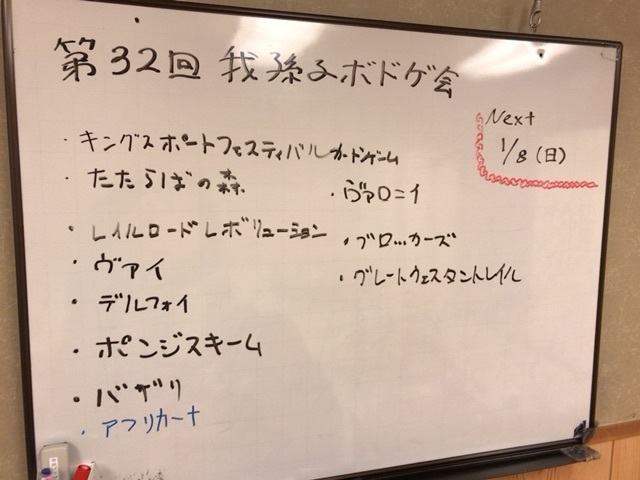 第32回 我孫子ボドゲ会
Next
1/8(日)
・キングスポートフェスティバルカードゲーム
・たたらばの森
・レイルロードレボリューション
・ヴァイ
・デルフォイ
・ポンジスキーム
・バザリ
・アフリカーナ
・ヴァロニイ
・ブロッカーズ
・グレートウェスタントレイル